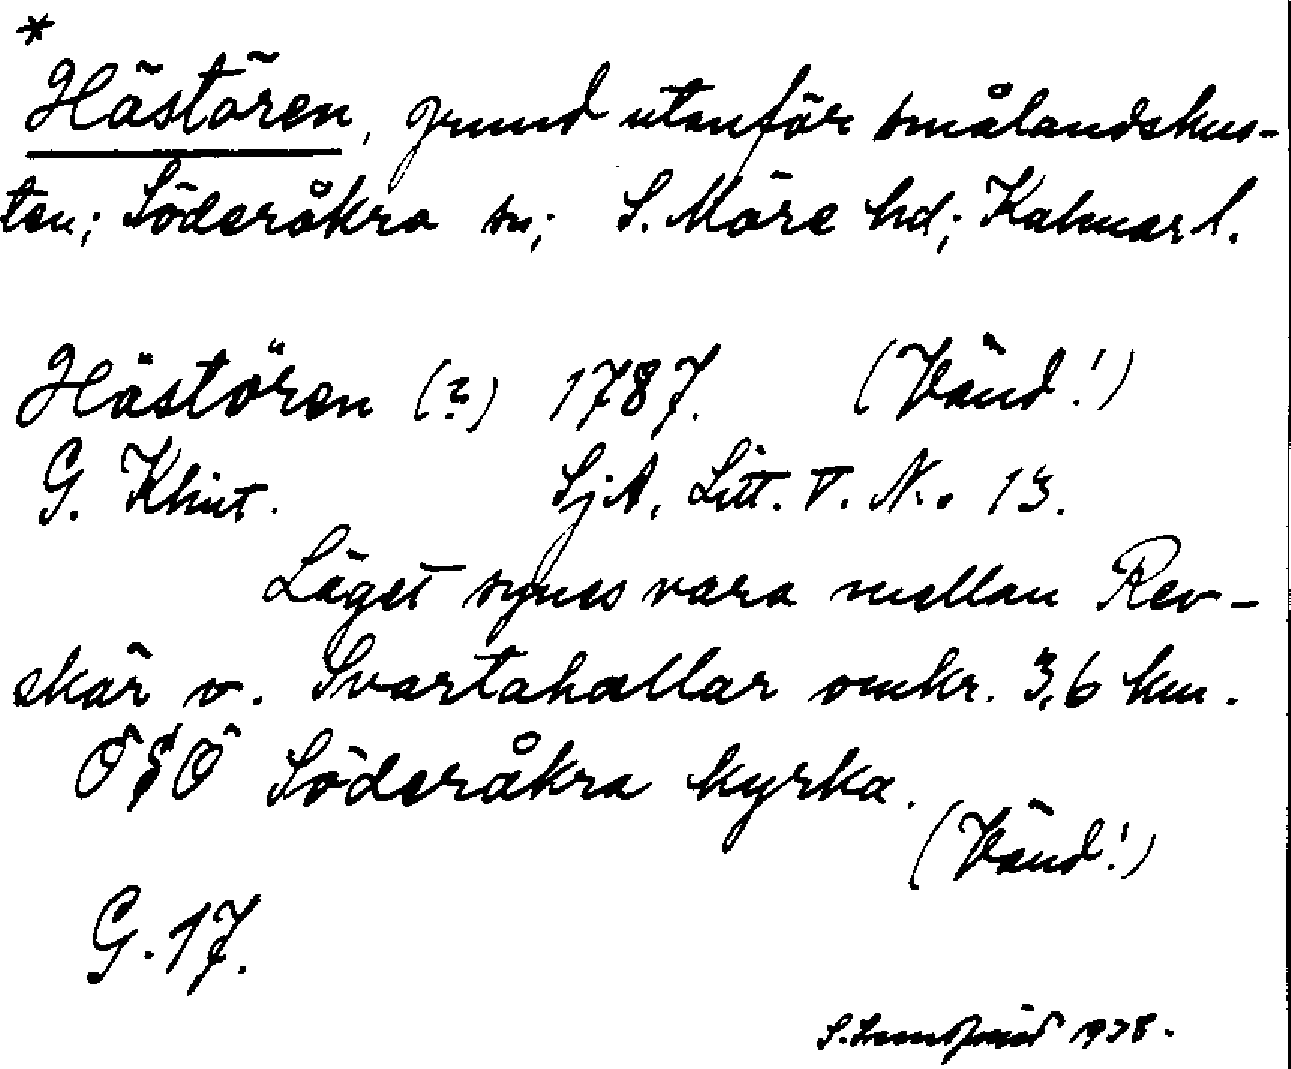 *
Hästören, grund utanför smålandskus-
ten; Söderåkra sn; S. Möre hd; Kalmar l.
Hästören (?) 1787. (Vänd!)
G. Klint. SjA, Litt. V. No 13.
Läget synes vara mellan Rev-
skär o. Svartahallar omkr. 3,6 km.
ÖSÖ Söderåkra kyrka.
(Vänd!)
G. 17.
S. 1938.